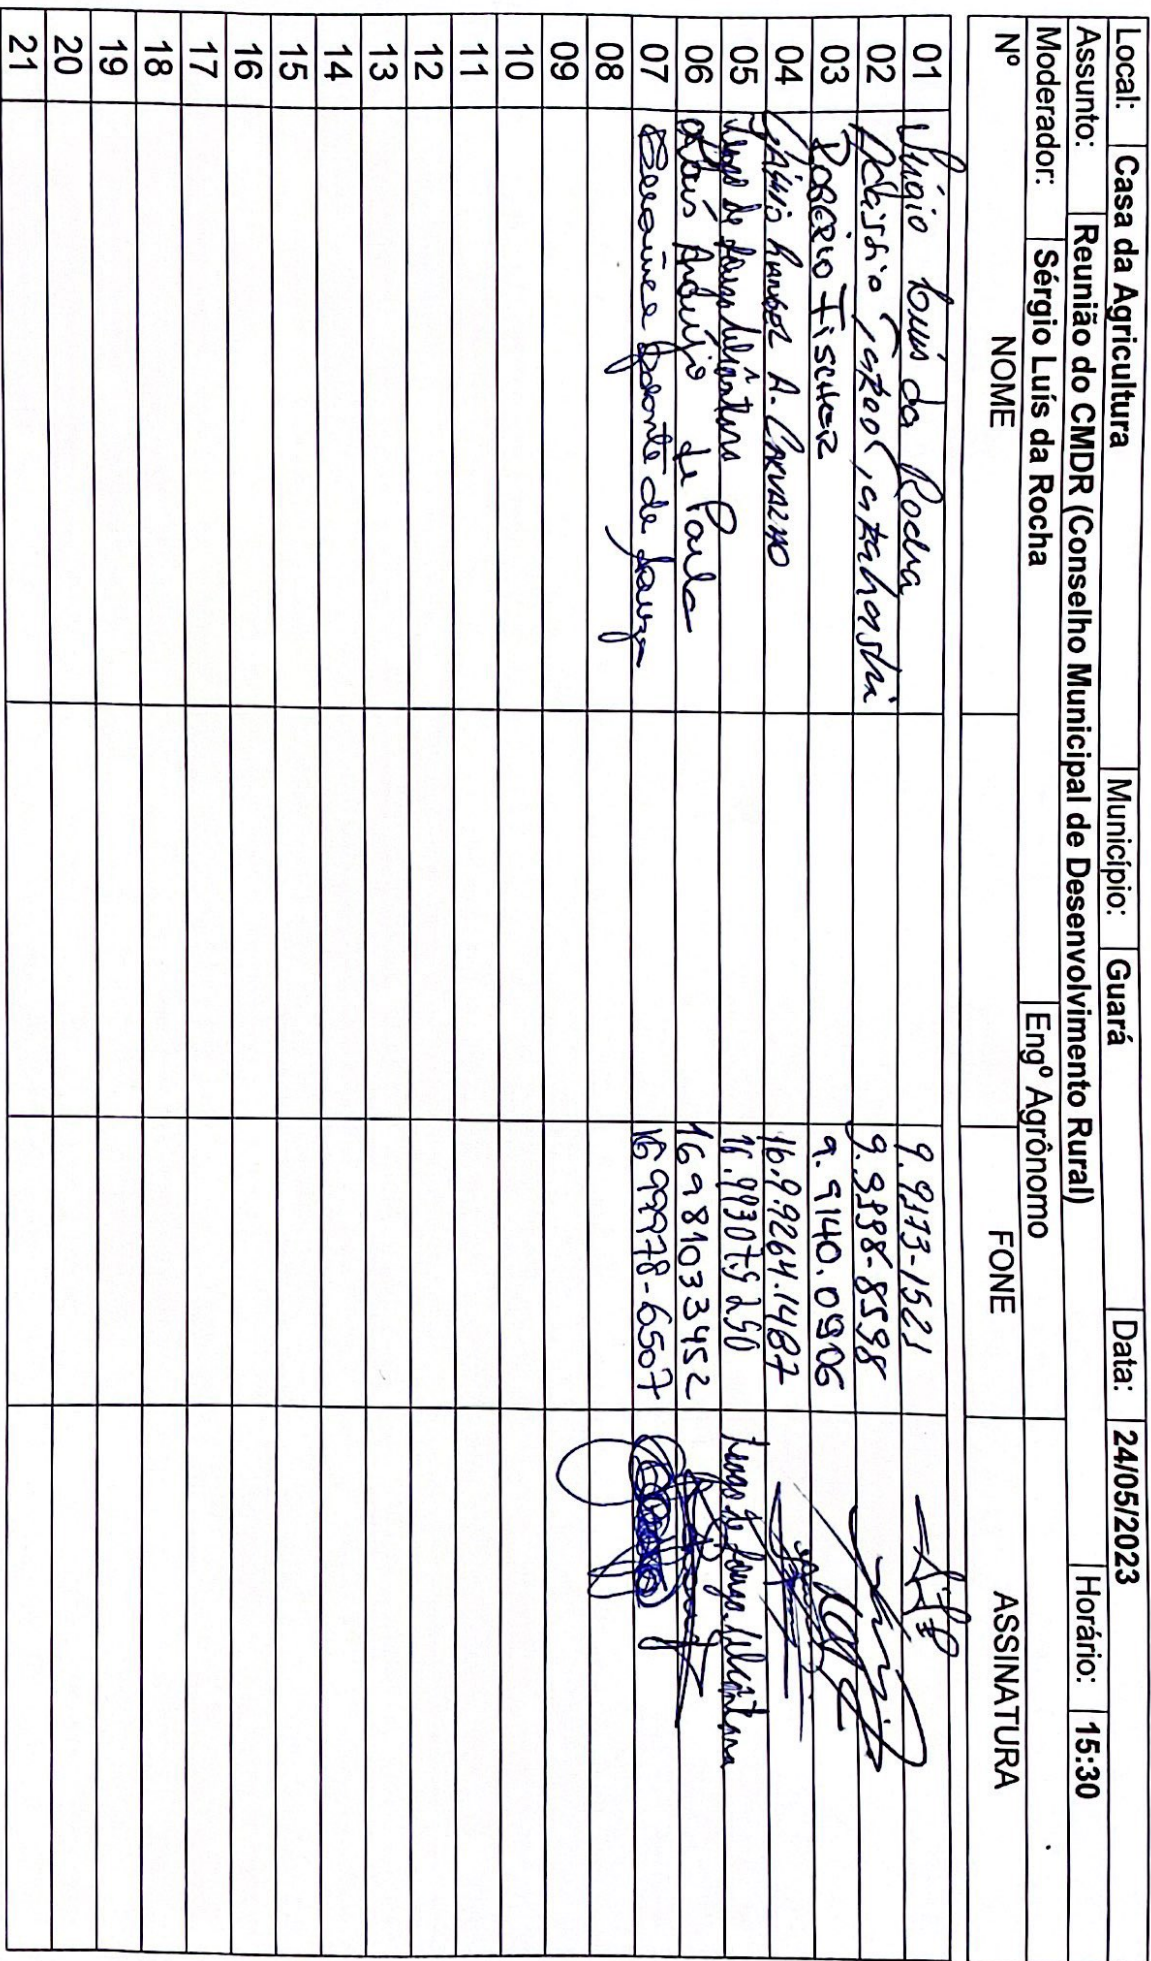 Local: Casa da Agricultura Município: Guará Data: 24/05/2023 Horário: 15:30
Assunto: Reunião do CMDR (Conselho Municipal de Desenvolvimento Rural)
Moderador: Sérgio Luís da Rocha Engº Agrônomo
Nº NOME FONE ASSINATURA
01 Luís da Rocha 9.9173-1521
02 9.9998-8598
03 Rogério Fischer 9.9140.0906
04 Cássio Rangel A. Carvalho 16.9.9264.1487
05 de Souza Alcântara 16.993079250 de Souza Alcântara
06 Laís Araújo de Paula 16 981033452
07 de Souza 16 99978-6507
08
09
10
11
12
13
14
15
16
17
18
19
20
21